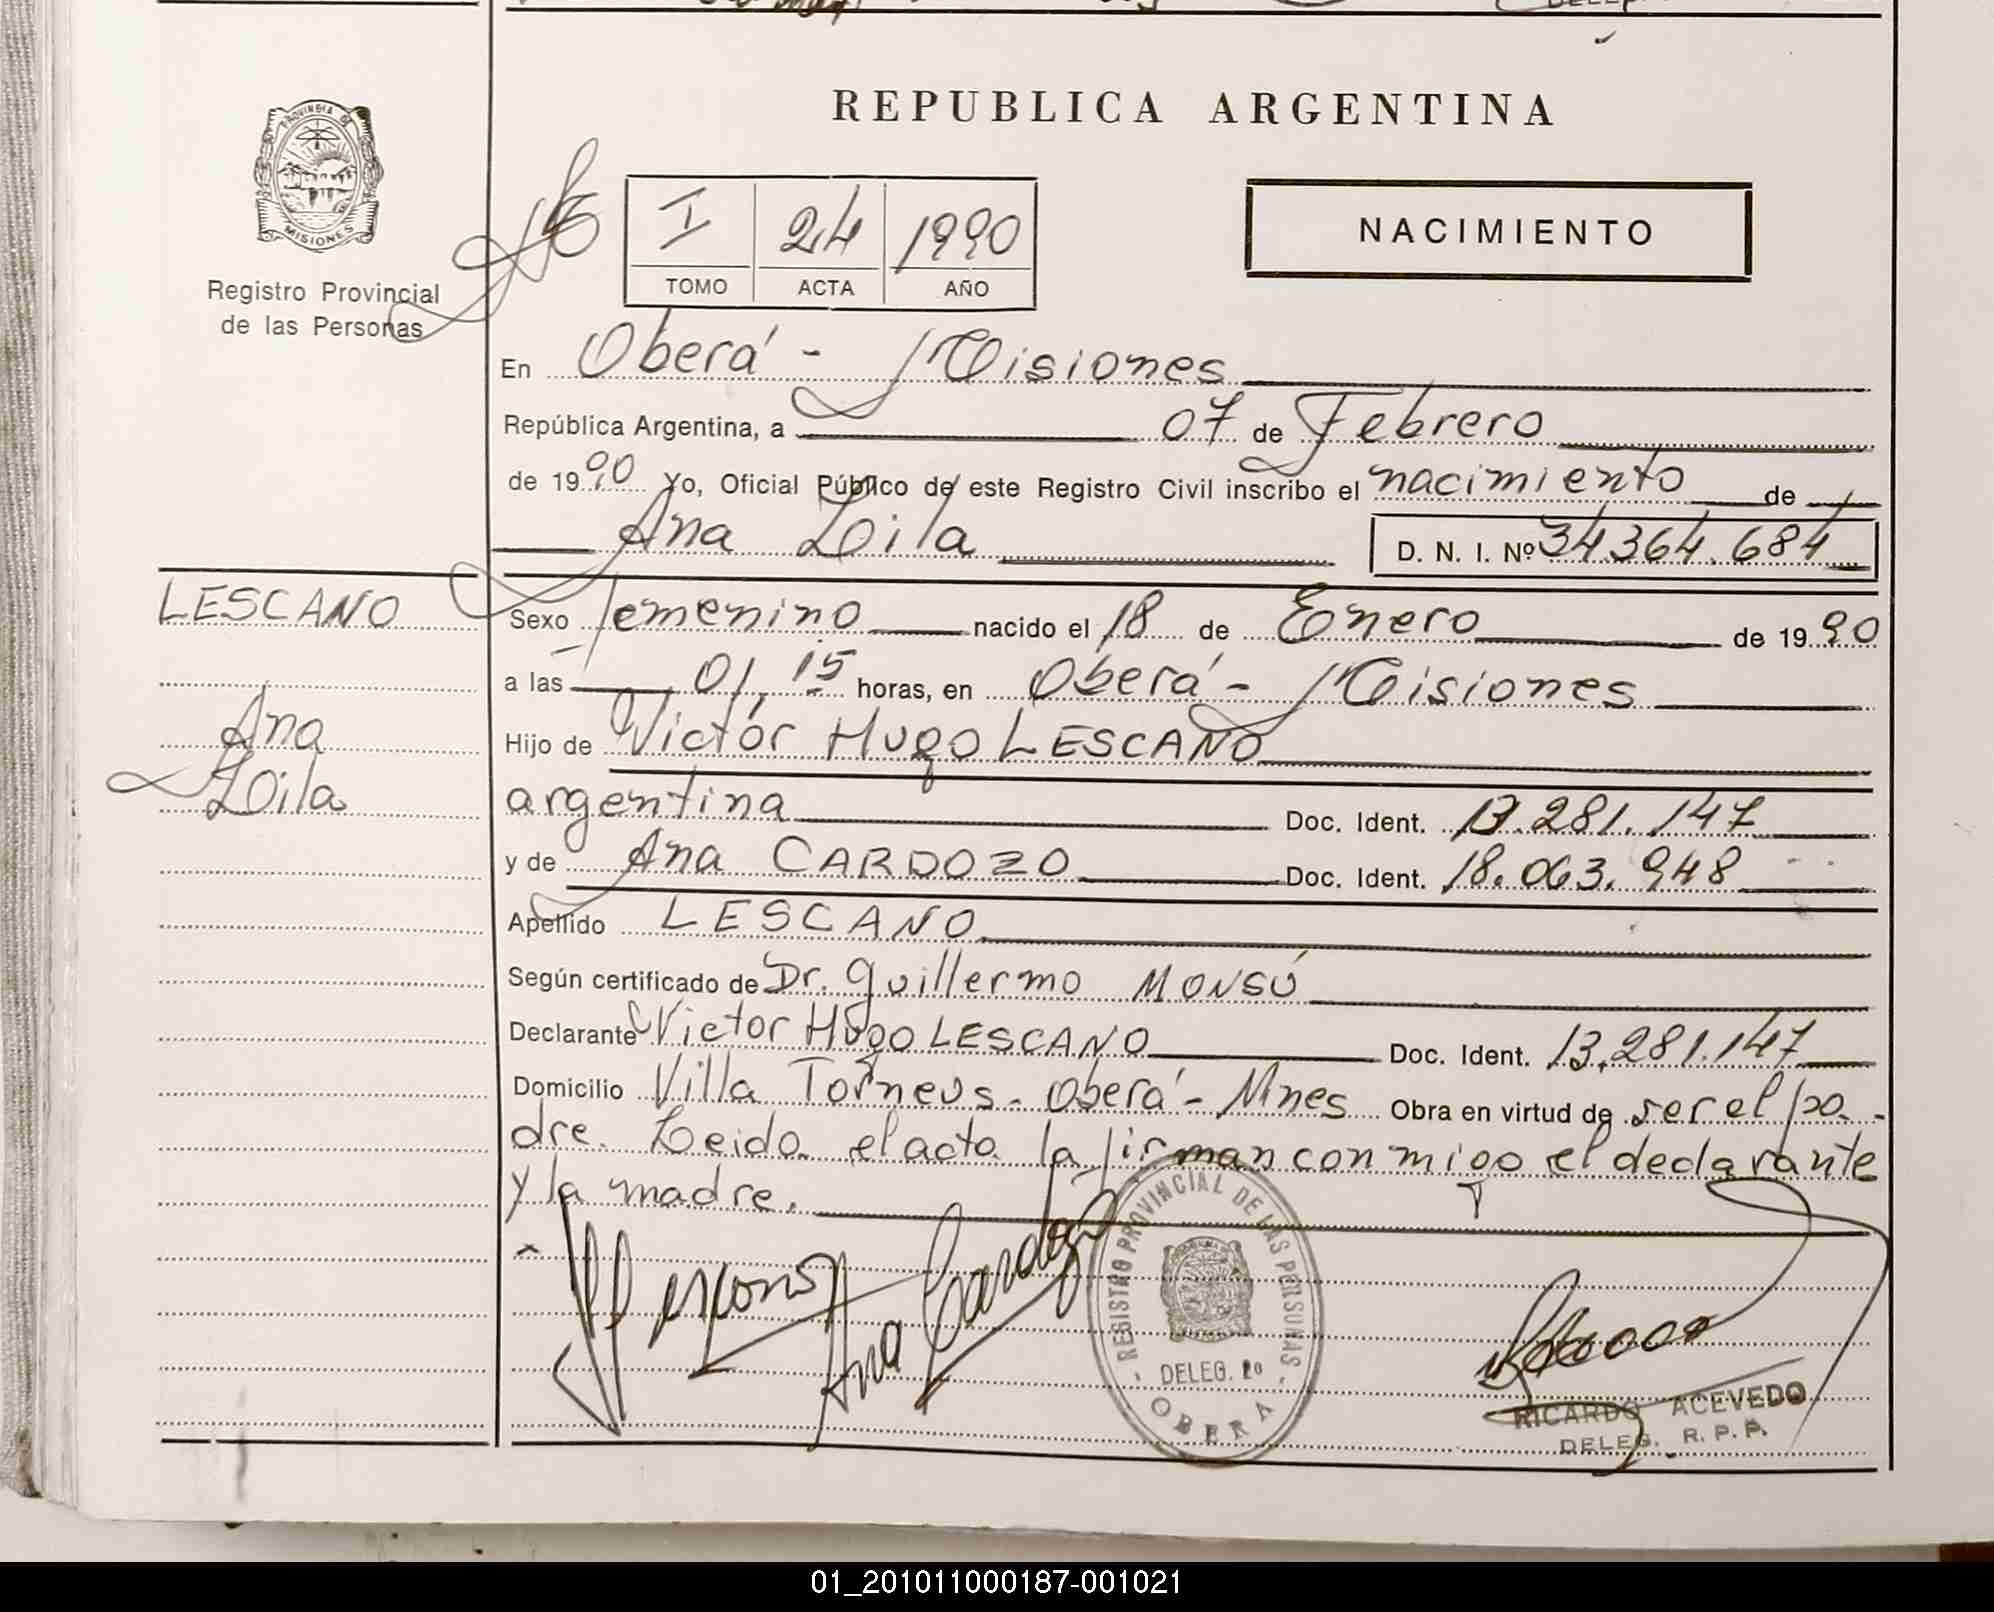 REPUBLICA ARGENTINA
PROVINCIA DE
MISIONES
Registro Provincial
de las Personas
I 24 1990
TOMO ACTA AÑO
NACIMIENTO
En Oberá - Misiones
República Argentina, a 07 de Febrero
de 1990 Yo, Oficial Público de este Registro Civil inscribo el nacimiento de
Ana Loila D. N. I. Nº 34.364.684
LESCANO
Ana
Loila
Sexo femenino nacido el 18 de Enero de 1990
a las 01,15 horas, en Oberá - Misiones
Hijo de Victor Hugo LESCANO
argentina Doc. Ident. 13.281.147
y de Ana CARDOZO Doc. Ident. 18.063.948
Apellido LESCANO
Según certificado de Dr. Guillermo MONSÚ
Declarante Victor Hugo LESCANO Doc. Ident. 13.281.147
Domicilio Villa Torneus - Oberá - Mnes Obra en virtud de ser el pa-
dre. Leida el acta la firman conmigo el declarante
y la madre.
Ana Cardozo
REGISTRO PROVINCIAL DE LAS PERSONAS
DELEG. 20
OBERA
RICARDO ACEVEDO
DELEG. R. P. P.
01_201011000187-001021